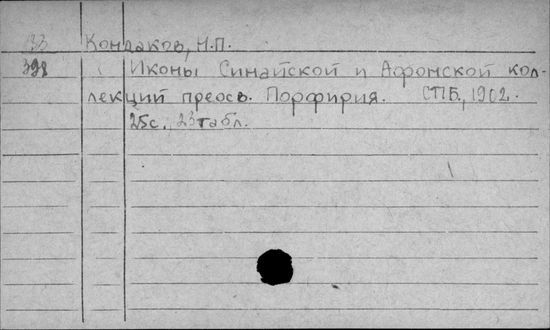 Кондаков, Н.П.
398 Иконы Синайской и Афонской кол-
лекций преосв. Порфирия. СПБ., 1902.
25с., 23табл.